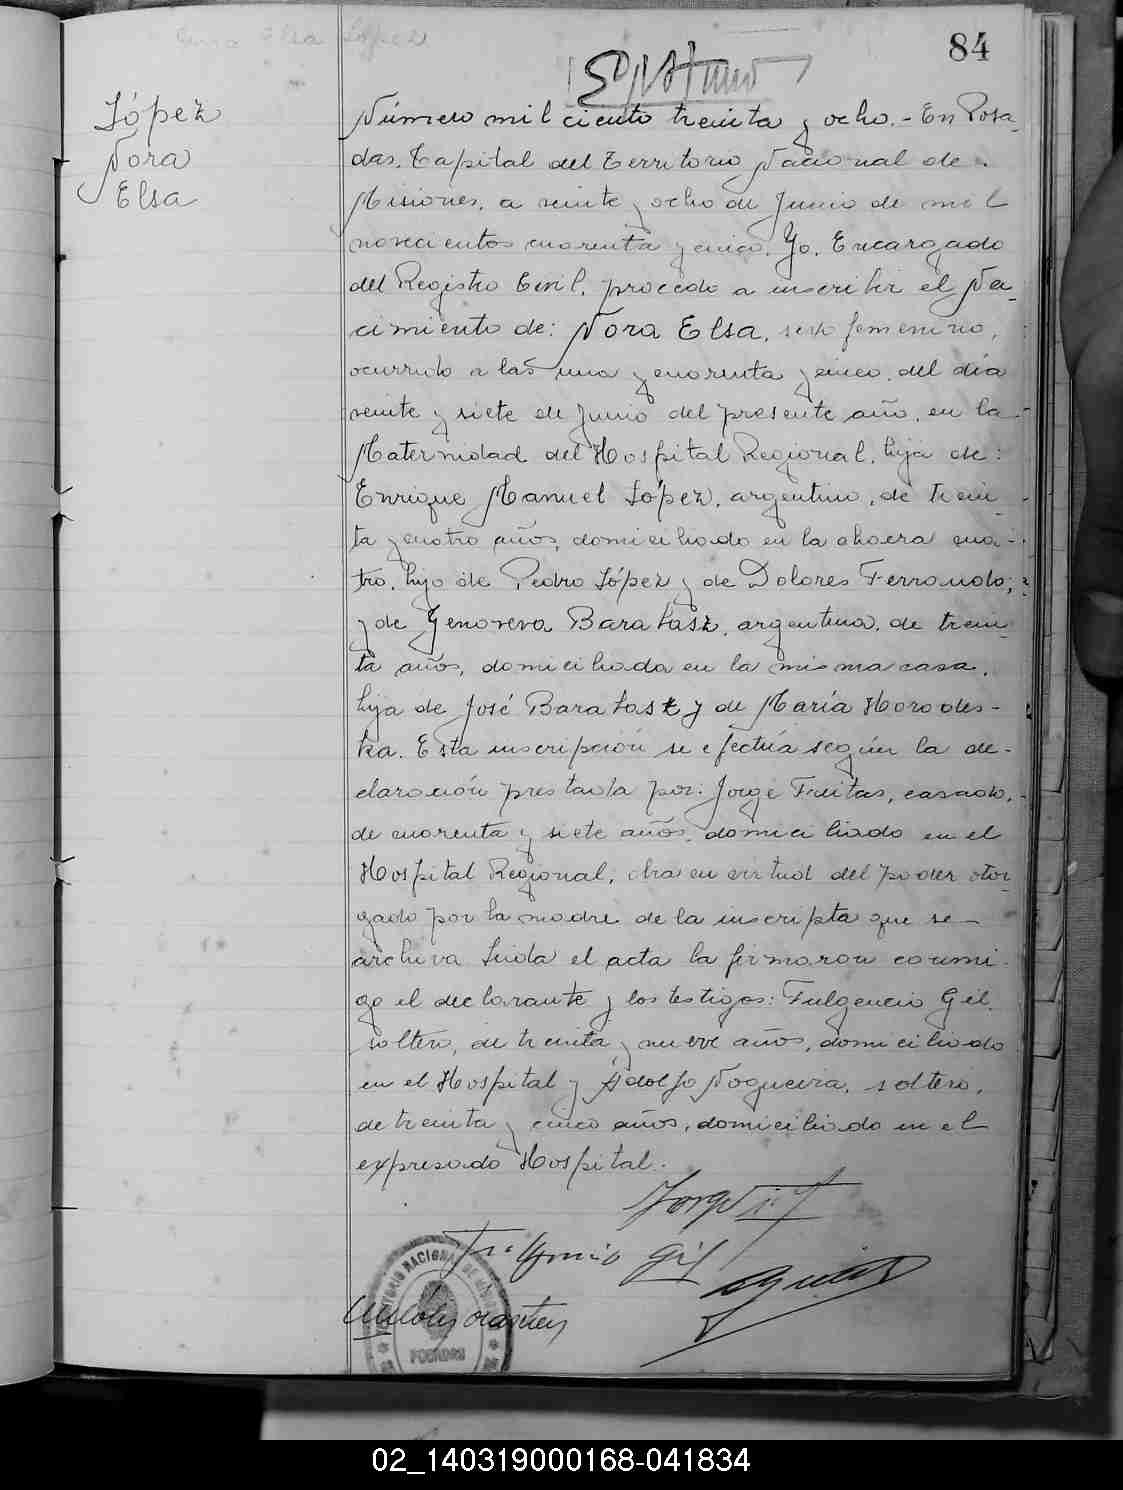 84
López
Nora
Elsa
Número mil ciento treinta y ocho.- En Posa-
das, Capital del Territorio Nacional de
Misiones, a veinte y ocho de Junio de mil
novecientos cuarenta y cinco. Yo, Encargado
del Registro Civil, procedo a inscribir el Na-
cimiento de: Nora Elsa, sexo femenino,
ocurrido a las una y cuarenta y cinco, del día
veinte y siete de Junio del presente año, en la
Maternidad del Hospital Regional, hija de:
Enrique Manuel López, argentino, de trein-
ta y cuatro años, domiciliado en la chacra cua-
tro, hijo de Pedro López y de Dolores Ferrando;
y de Genoveva Baratasz, argentina, de trein-
ta años, domiciliada en la misma casa,
hija de José Baratasz y de María Horodes-
ka. Esta inscripción se efectúa según la de-
claración prestada por: Jorge Freitas, casado,
de cuarenta y siete años, domiciliado en el
Hospital Regional, obra en virtud del poder otor-
gado por la madre de la inscripta que se
archiva. Leída el acta la firmaron conmi-
go el declarante y los testigos: Fulgencio Gil,
soltero, de treinta y nueve años, domiciliado
en el Hospital y Adolfo Nogueira, soltero,
de treinta y cinco años, domiciliado en el
expresado Hospital.
Fulgencio Gil
TERRITORIO NACIONAL DE MISIONES
POSADAS
02_140319000168-041834